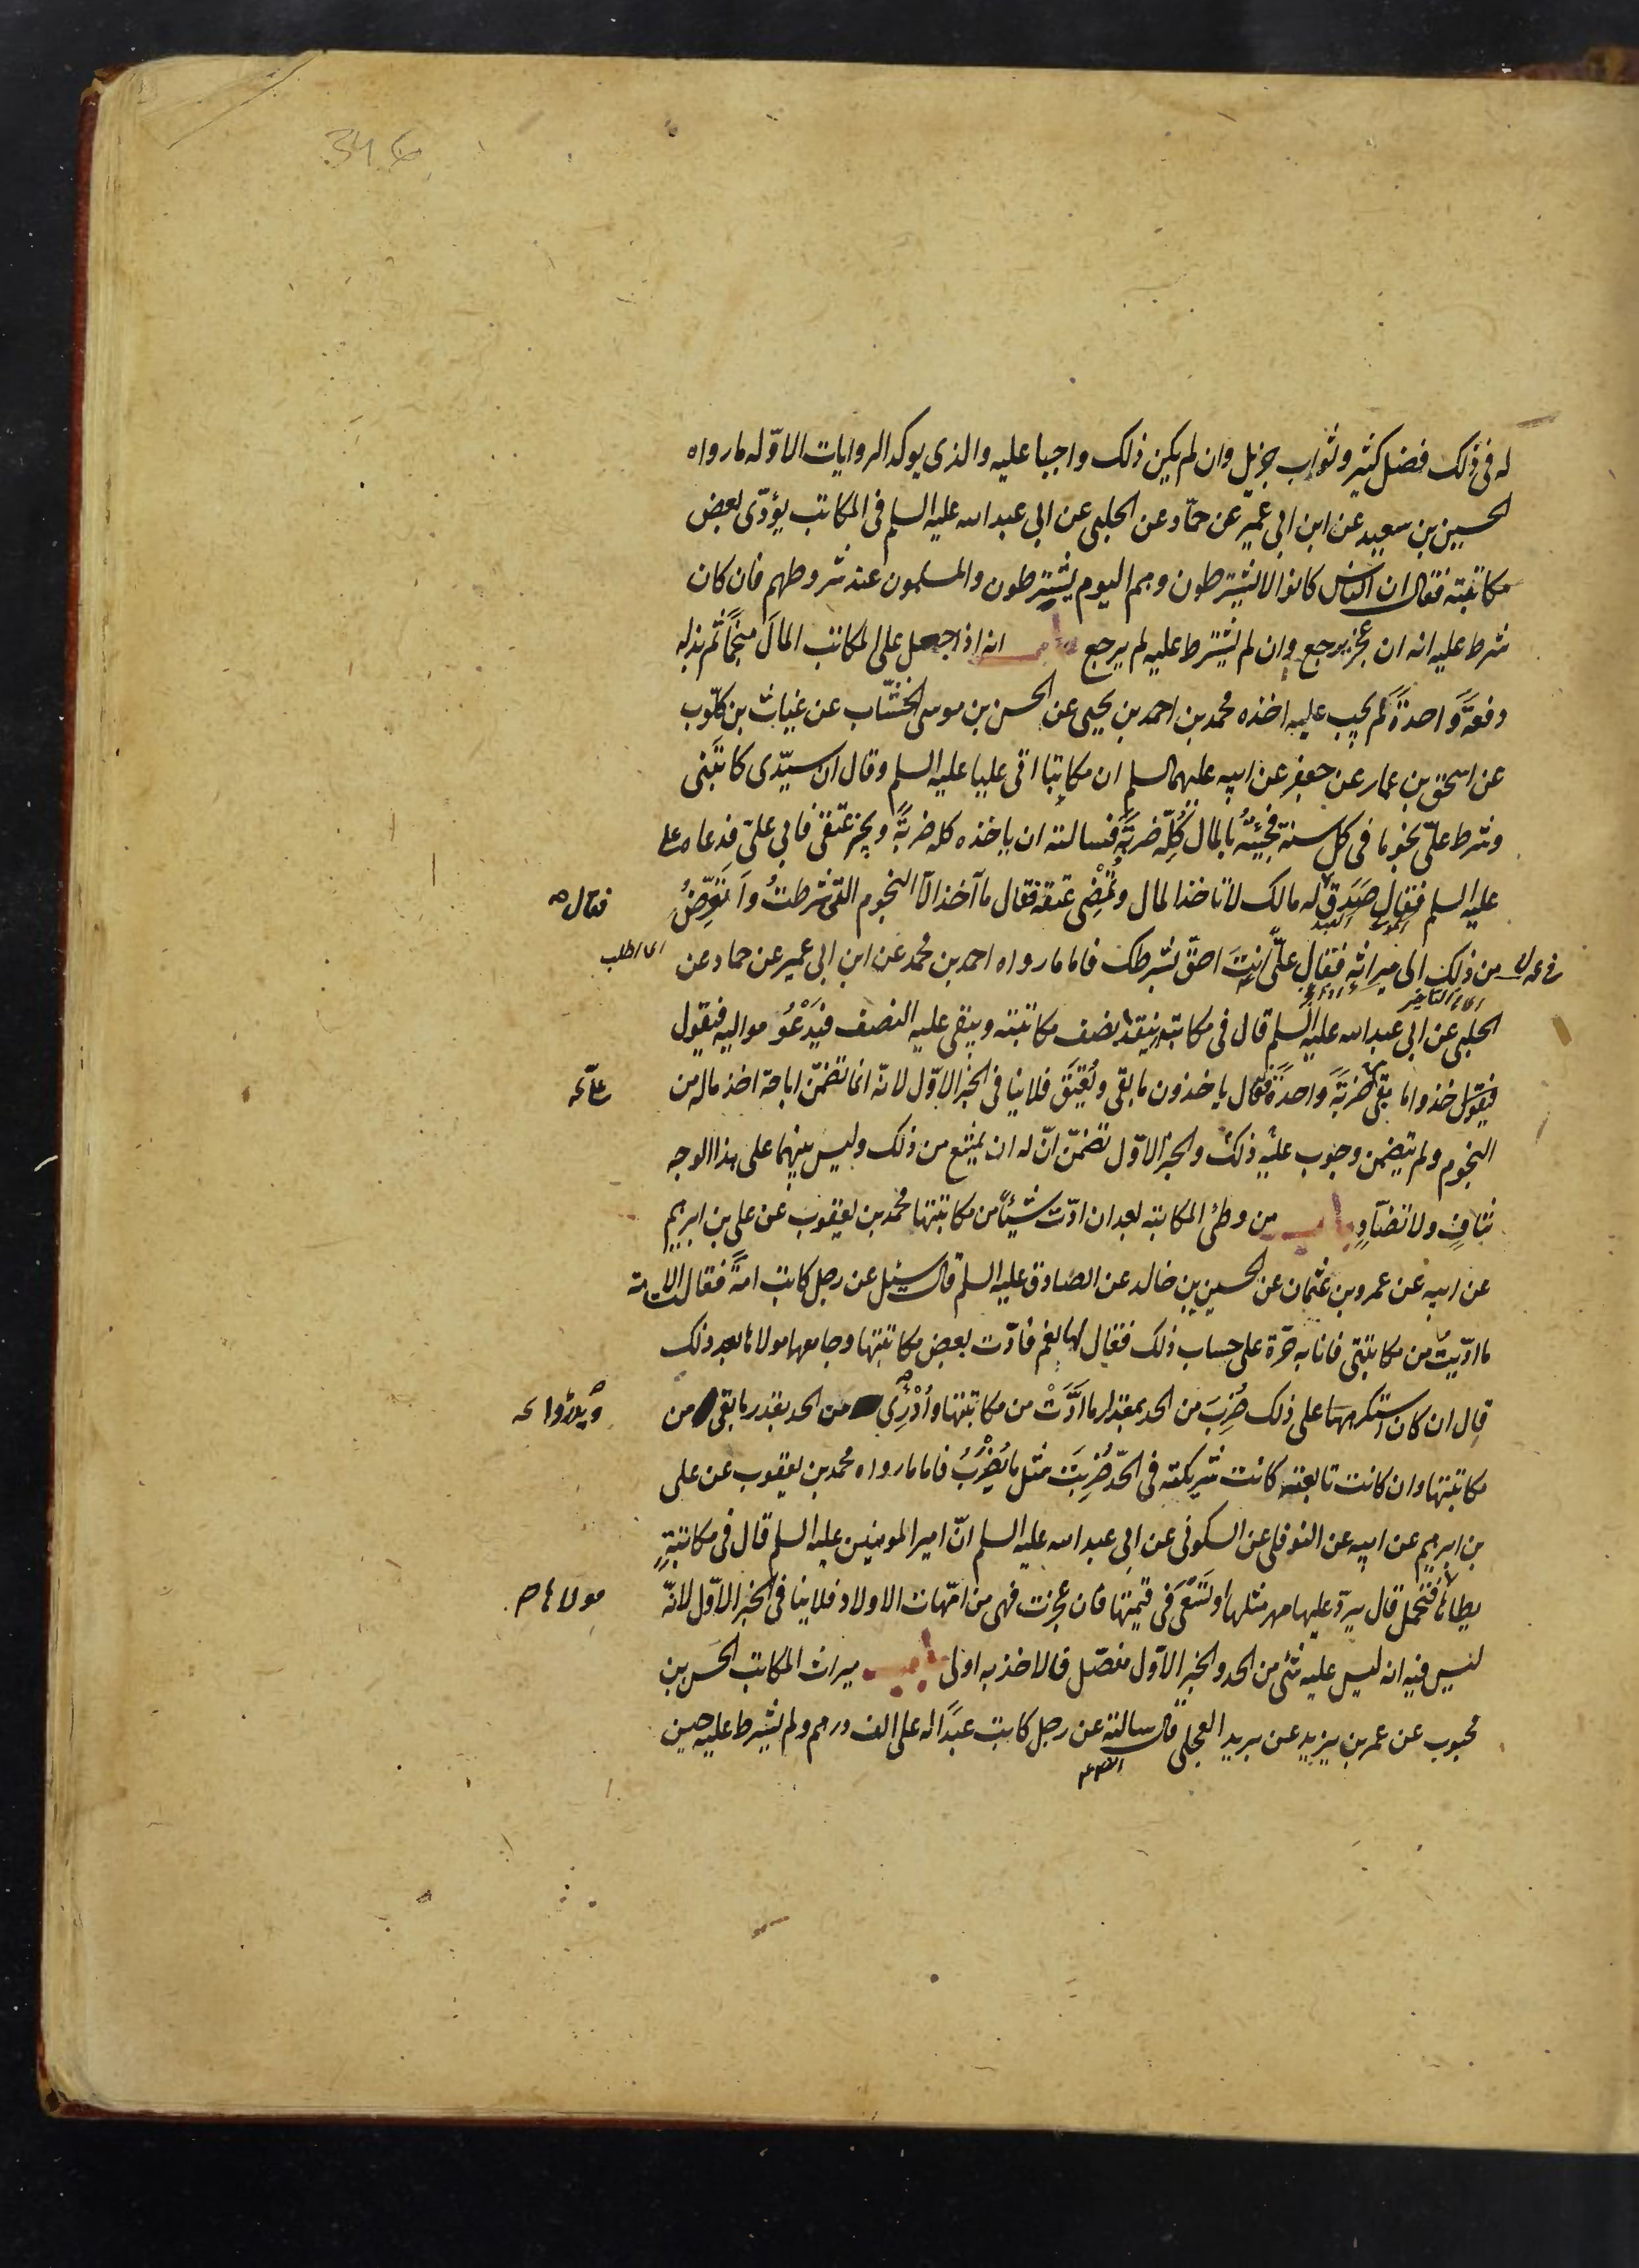 346
له فى ذلك فضل كثير وثواب جزيل وان لم يكن ذلك واجبا عليه والذى يوكد الروايات الاوّله ما رواه
الحسين بن سعيد عن ابن ابى عمير عن حمّاد عن الحلبى عن ابى عبد الله عليه السلم فى المكاتب يؤدّى بعض
مكاتبته فقال ان الناس كانوا لا يشترطون وهم اليوم يشترطون والمسلمون عند شروطهم فان كان
شرط عليه انه ان عجز يرجع وان لم يشترط عليه لم يرجع باب انه اذا جعل على المكاتب المال منجّما ثم بذله
دفعةً واحدةً لم يجب عليه اخذه محمد بن احمد بن يحيى عن الحسن بن موسى الخشّاب عن غياث بن كلّوب
عن اسحق بن عمار عن جعفر عن ابيه عليهما السلم ان مكاتبا اتى عليا عليه السلم وقال ان سيّدى كاتبنى
وشرط علىّ نجوما فى كل سنة فجئته بالمال كلّه ضربةً فسالته ان ياخذه كله ضربةً ويجيز عتقى فابى علىّ فدعاه على
عليه السلم فقال صدق فقال له مالك لا تاخذ المال وتمضى عتقه فقال ما آخذ الّا النجوم التى شرطتُ وأتعرّضُ
من ذلك الى ميراثه فقال علىّ انت احقّ بشرطك فاما ما رواه احمد بن محمد عن ابن ابى عمير عن حماد عن
اى اطلب
الحلبى عن ابى عبد الله عليه السلم قال فى مكاتب ينقد نصف مكاتبته ويبقى عليه النصف فيدعو مواليه فيقول
فيقول خذوا ما بقى ضربةً واحدةً قال ياخذون ما بقى ويُعتَق فلا ينافى الخبر الاوّل لانّه انما تضمّن اباحة اخذ ماله من
النجوم ولم يتضمن وجوب عليه ذلك والخبر الاوّل تضمّن انّ له ان يمتنع من ذلك وليس بينهما على هذا الوجه
تنافٍ ولا تضادّ باب من وطئ المكاتبة بعد ان ادّت شيئاً من مكاتبتها محمد بن يعقوب عن على بن ابرهيم
عن ابيه عن عمرو بن عثمان عن الحسين بن خالد عن الصادق عليه السلم قال سئل عن رجل كاتب امةً فقالت الامة
ما ادّيتُ من مكاتبتى فانا به حرّة على حساب ذلك فقال لها نعم فادّت بعض مكاتبتها وجامعها مولاها بعد ذلك
قال ان كان استكرهها على ذلك ضُرِبَ من الحد بمقدار ما ادَّتْ من مكاتبتها وادرئ من الحد بقدر ما بقى من
مكاتبتها وان كانت تابعته كانت شريكته فى الحدّ ضُرِبَت مثل ما يُضْرَبُ فاما ما رواه محمد بن يعقوب عن على
بن ابرهيم عن ابيه عن النوفلى عن السكونى عن ابى عبد الله عليه السلم انّ امير المومنين عليه السلم قال فى مكاتبةٍ
يطاها فتحمل قال يردّ عليها مهر مثلها وتسعى فى قيمتها فان عجزت فهى من امّهات الاولاد فلا ينافى الخبر الاوّل لانّه
مولاها
ليس فيه انه ليس عليه شئ من الحد والخبر الاوّل مفصّل فالاخذ به اولى باب ميراث المكاتب الحسن بن
محبوب عن عمر بن يزيد عن بريد العجلى قال سالته عن رجل كاتب عبداً له على الف درهم ولم يشترط عليه حين